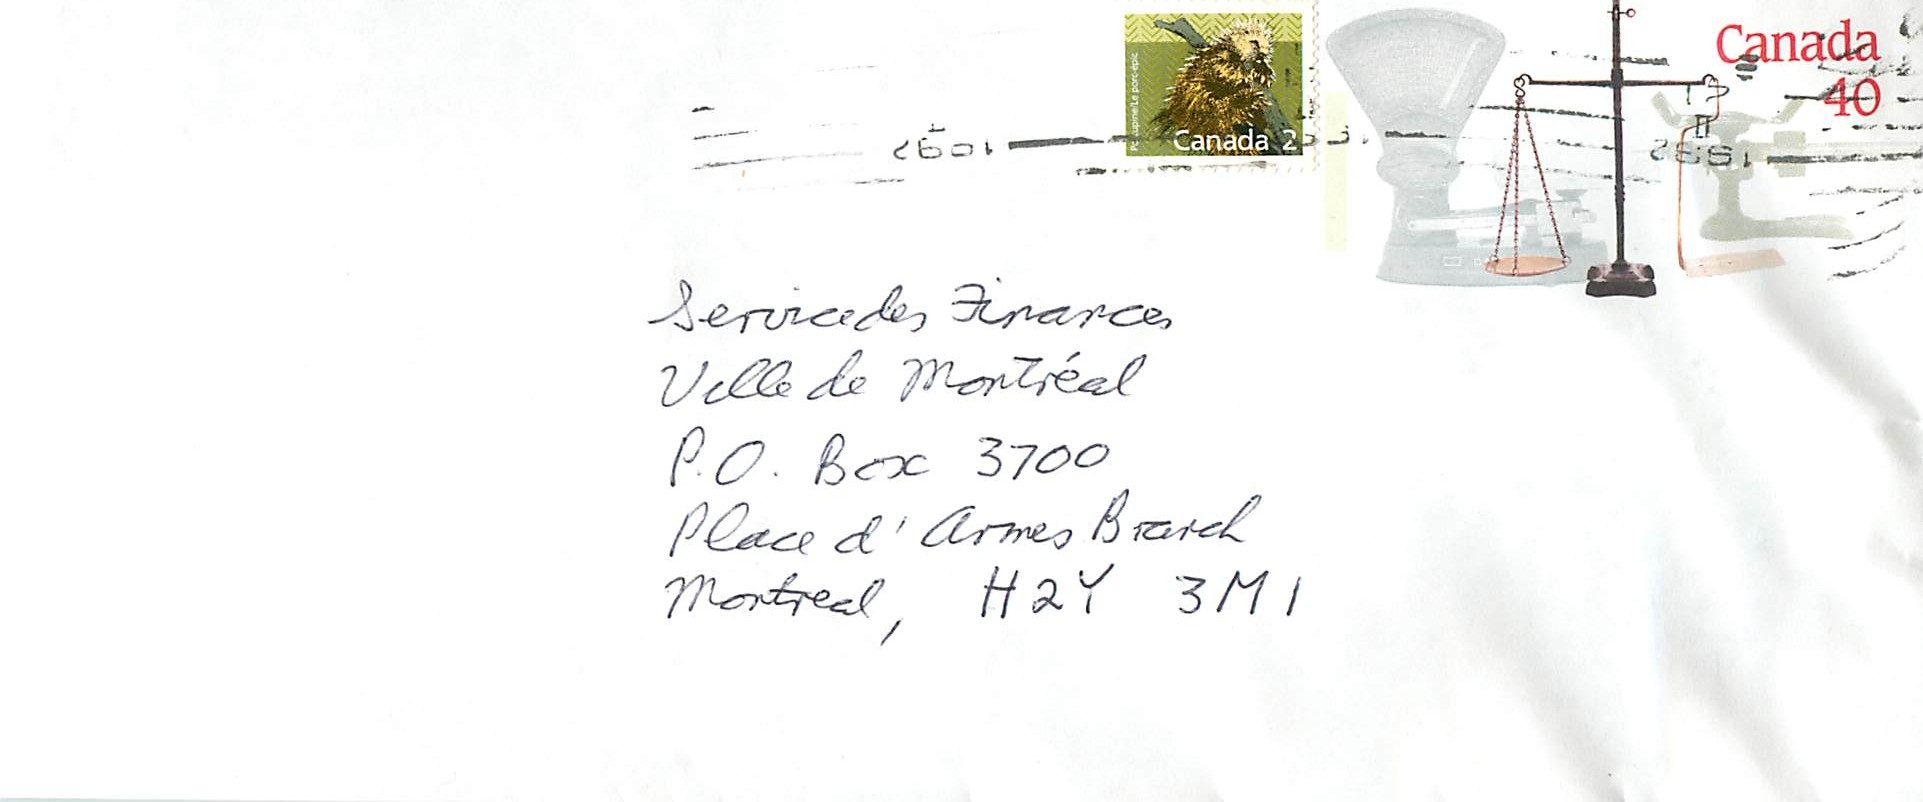 Canada
40
Porcupine/Le porc-épic
Canada 2
1992
Service des Finances
Ville de Montréal
P.O. Box 3700
Place d'Armes Branch
Montreal, H2Y 3M1